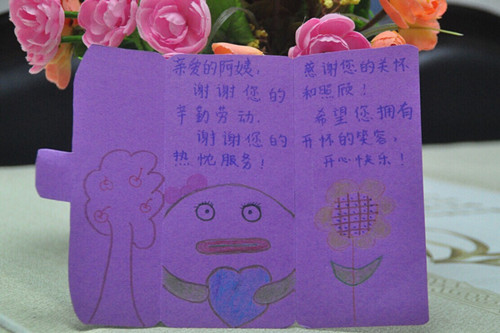 亲爱的阿姨，
谢谢您的
辛勤劳动，
谢谢您的
热忱服务！
感谢您的关怀
和照顾！
希望您拥有
开怀的笑容，
开心快乐！